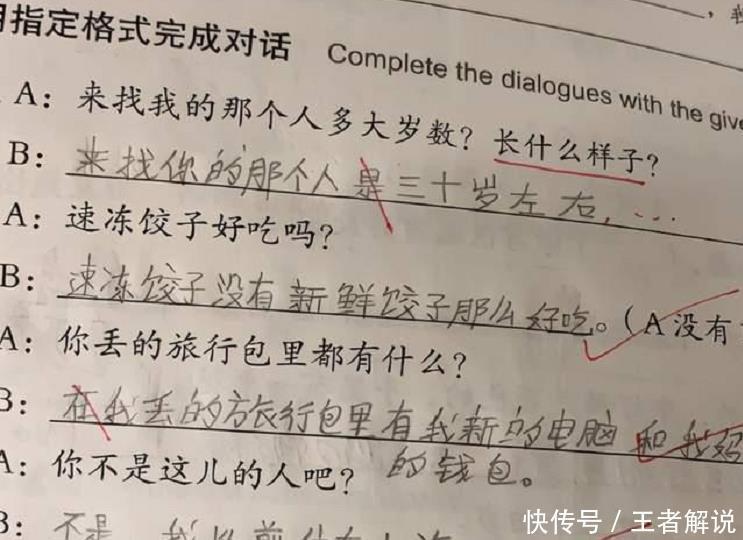 指定格式完成对话 Complete the dialogues with the give
A：来找我的那个人多大岁数？长什么样子？
B：来找你的那个人是三十岁左右，...
A：速冻饺子好吃吗？
B：速冻饺子没有新鲜饺子那么好吃。（A没有
A：你丢的旅行包里都有什么？
B：在我丢的旅行包里有我新的电脑和我妈
的钱包。
A：你不是这儿的人吧？
B：不是
快传号/王者解说